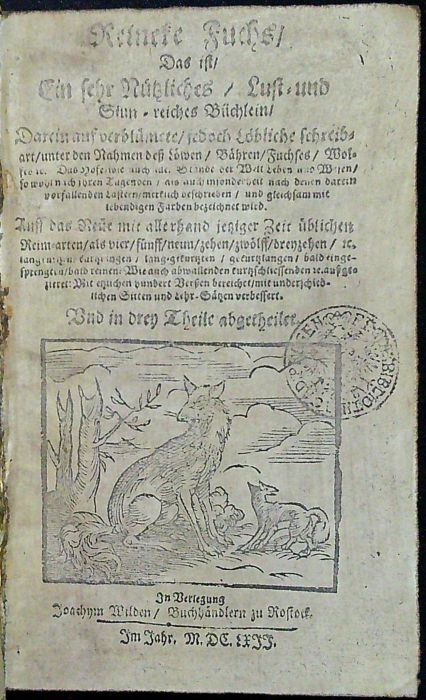 Reineke Fuchs/
Das ist/
Ein sehr Nützliches / Lust- und
Sinn-reiches Büchlein/
Darein auf verblümete/ jedoch Löbliche schreib-
art/ unter den Nahmen deß Löwen / Bähren/ Fuchses / Wol-
fes ꝛc. Das Hofe, wie auch Stände der Welt Leben und Wesen/
so wohl nach ihren Tugenden / als auch nach denen darein
vorfallenden Lastern/ merklich beschrieben / und gleichsam mit
lebendigen Farben bezeichnet wird.
Auff das Neüe mit allerhand jetziger Zeit üblichen
Reim-arten/ als vier/ fünff/ neun/ zehen/ zwölff/ dreyzehen / ꝛc.
lang-gekürtzten / gekürtzlangen / bald einge-
sprengten/ bald reinen: Wie auch abwallenden kurtzschliessenden ꝛc. außge-
zieret: Mit etzlichen hundert Versen bereichet/ mit underschied-
lichen Sitten und Lehr-Sätzen verbessert.
Und in drey Theile abgetheilet.
In Verlegung
Joachym Wilden / Buchhändlern zu Rostock.
Im Jahr. M. DC. LXII.